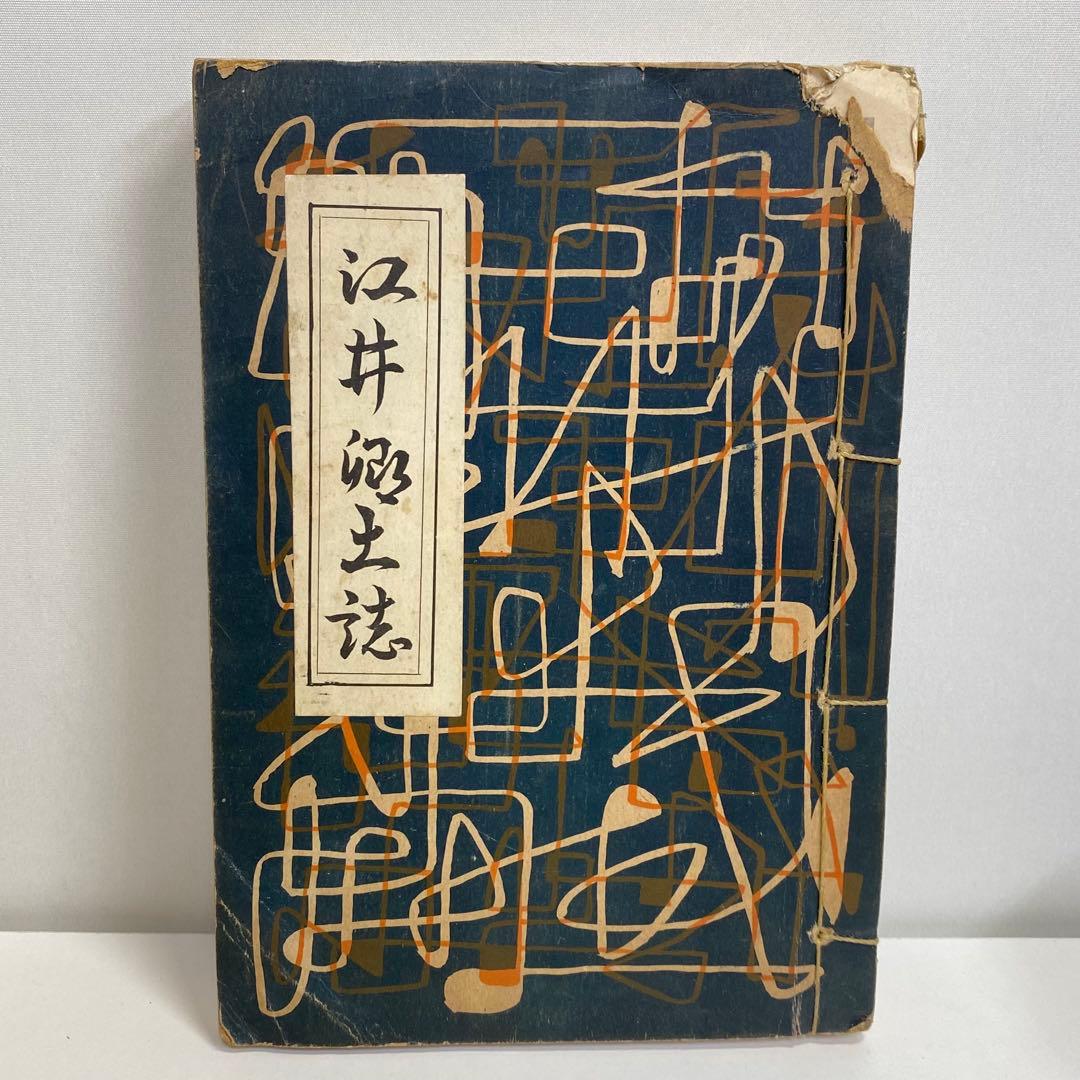 江井郷土誌